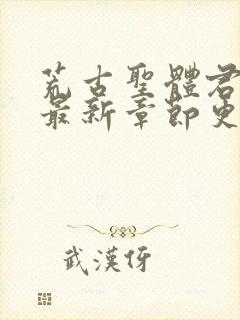 荒古聖體君
最新章節更
武漢伢